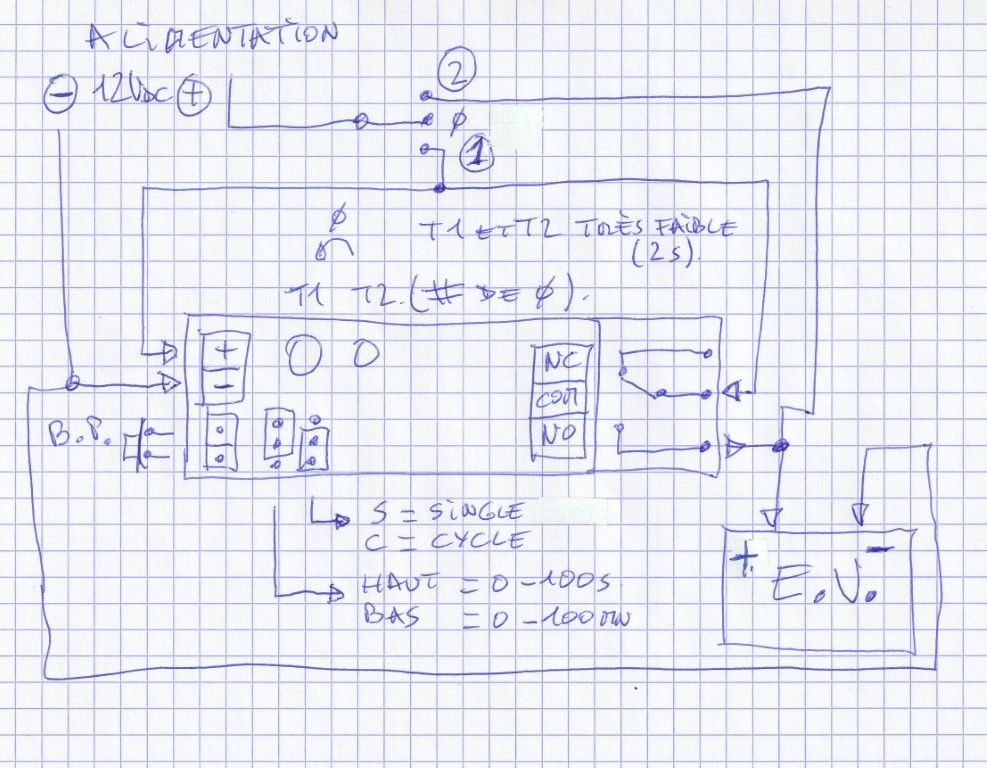 ALIMENTATION
⊖ 12VDC ⊕
②
ϕ
①
ϕ
T1 ET T2 TRÈS FAIBLE
(2s).
T1 T2. (# DE ϕ).
+
-
NC
COM
NO
B.P.
S = SINGLE
C = CYCLE
HAUT = 0-100S
BAS = 0-100MN
+ -
E.V.